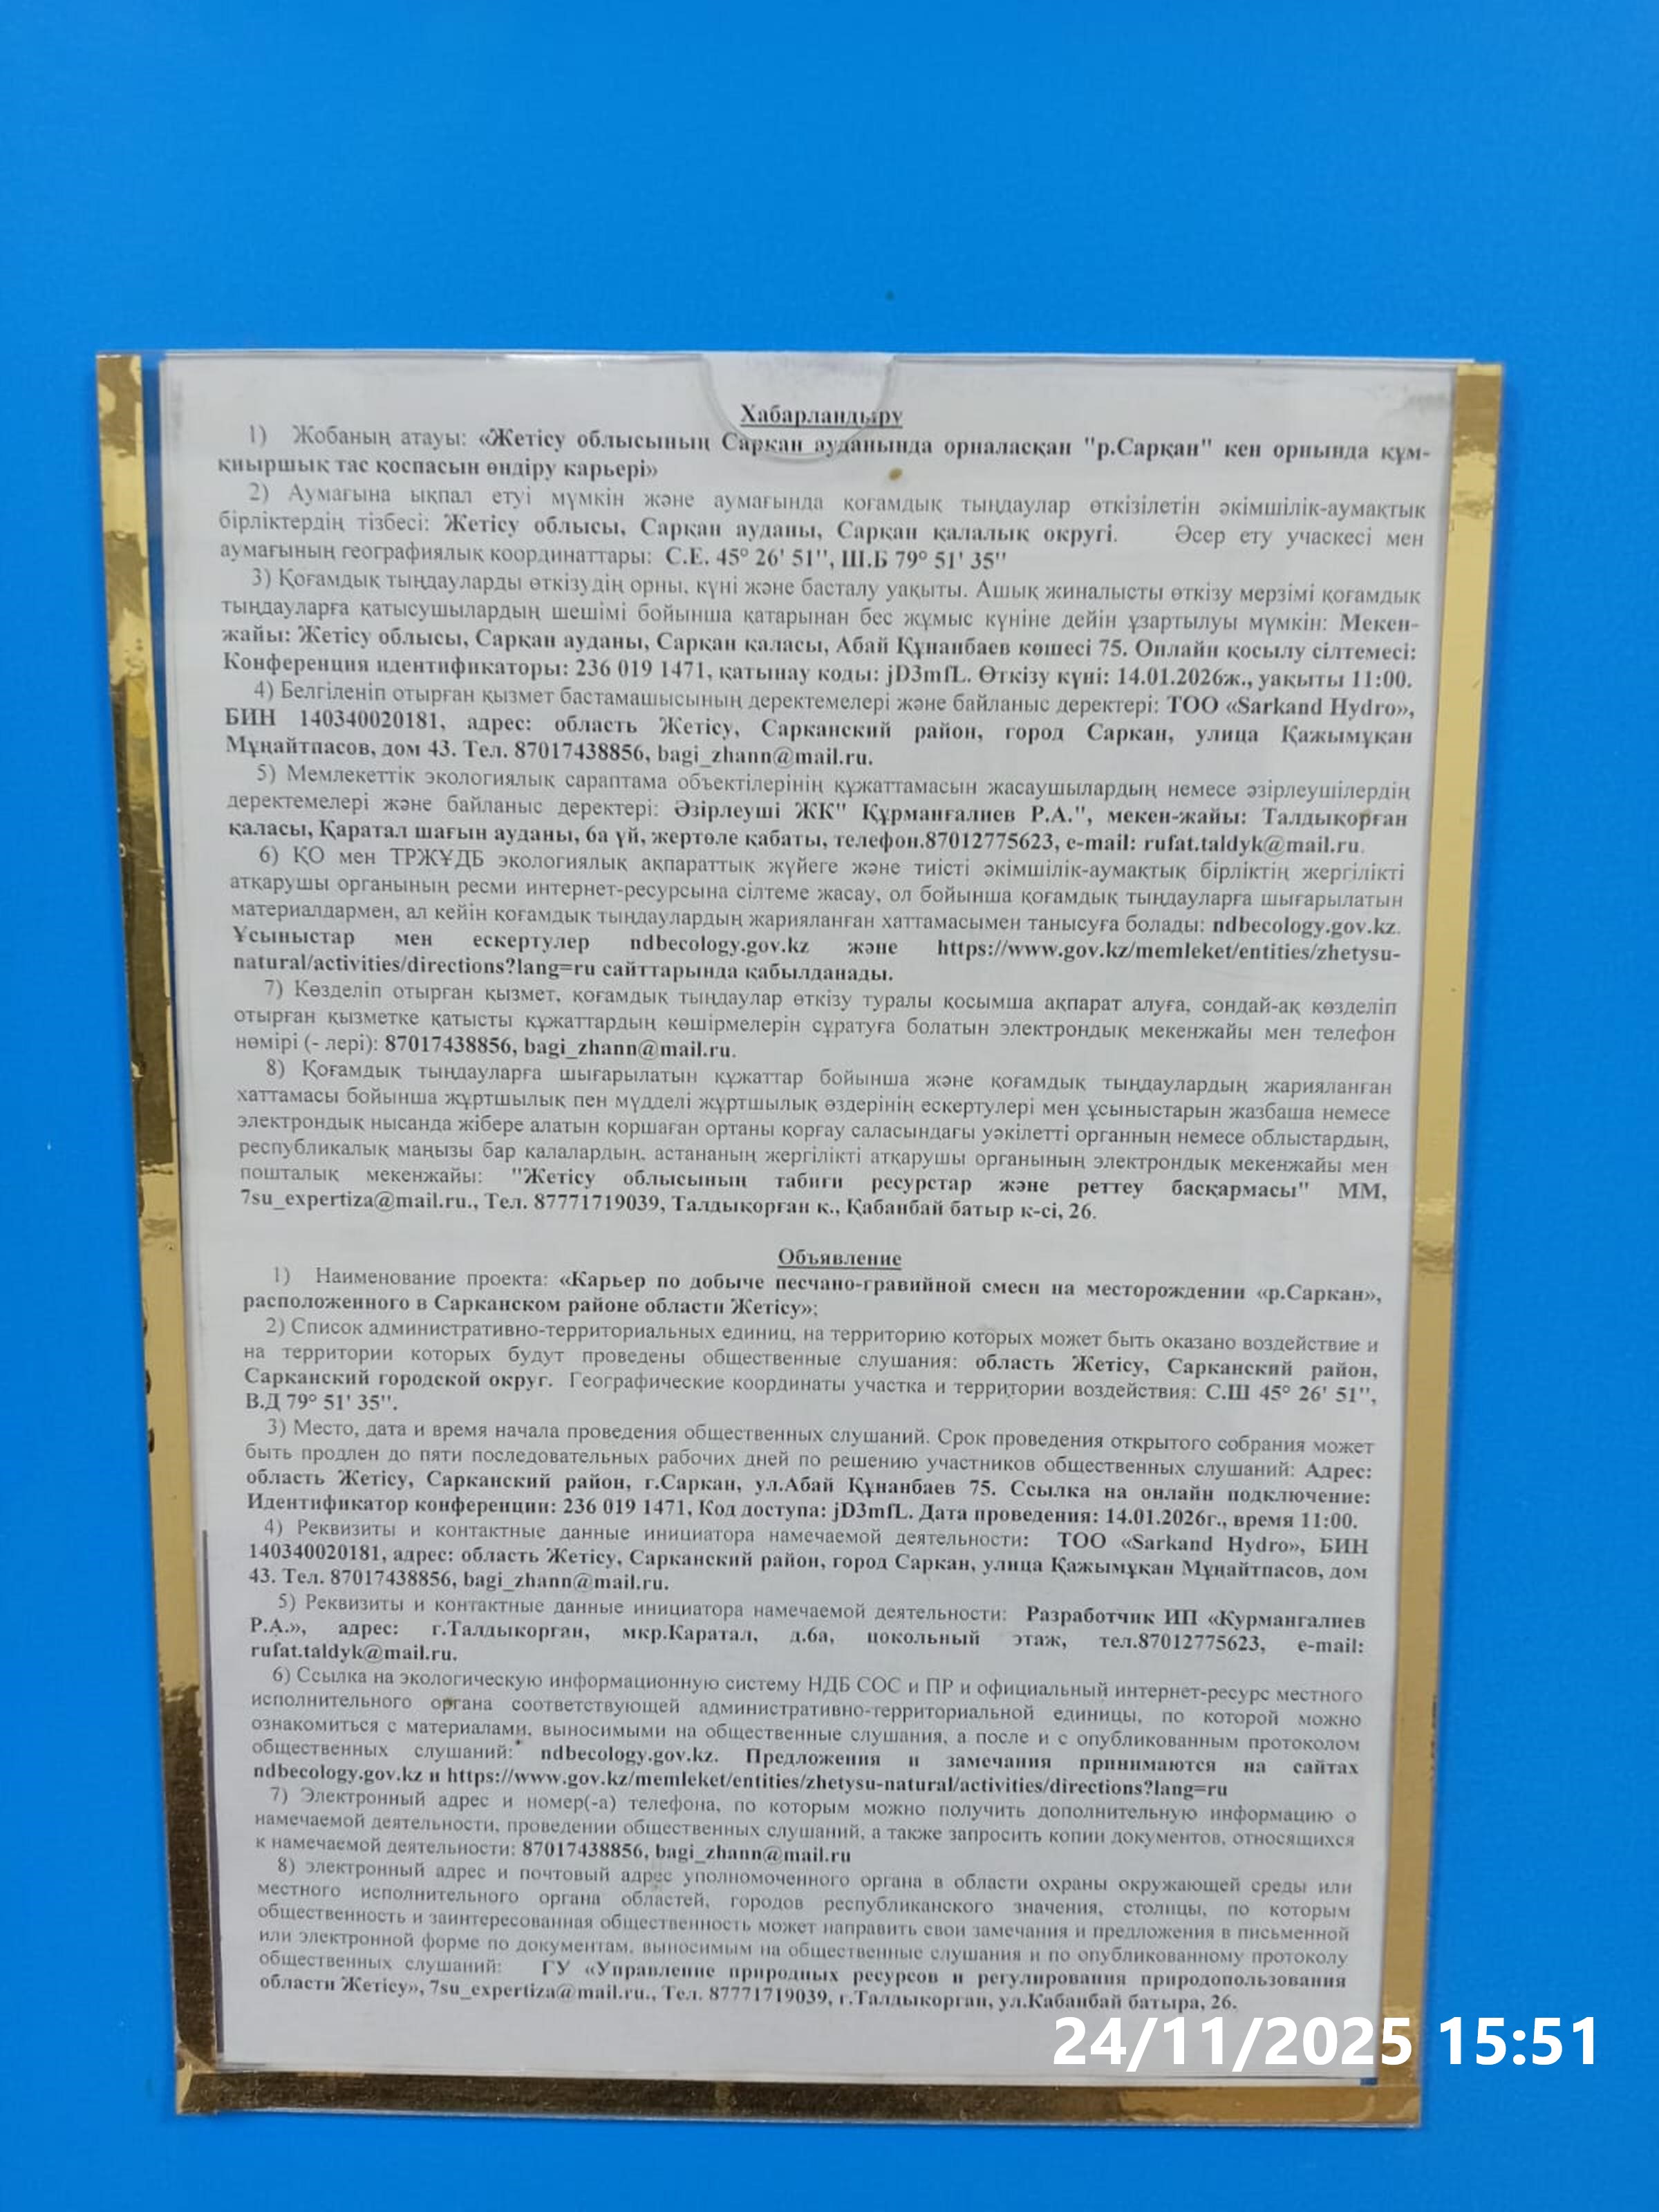 Хабарландыру
1) Жобаның атауы: «Жетісу облысының Сарқан ауданында орналасқан "р.Сарқан" кен орнында құм-
қиыршық тас қоспасын өндіру карьері»
2) Аумағына ықпал етуі мүмкін және аумағында қоғамдық тыңдаулар өткізілетін әкімшілік-аумақтық
бірліктердің тізбесі: Жетісу облысы, Сарқан ауданы, Сарқан қалалық округі. Әсер ету учаскесі мен
аумағының географиялық координаттары: С.Е. 45° 26' 51'', Ш.Б 79° 51' 35''
3) Қоғамдық тыңдауларды өткізудің орны, күні және басталу уақыты. Ашық жиналысты өткізу мерзімі қоғамдық
тыңдауларға қатысушылардың шешімі бойынша қатарынан бес жұмыс күніне дейін ұзартылуы мүмкін: Мекен-
жайы: Жетісу облысы, Сарқан ауданы, Сарқан қаласы, Абай Құнанбаев көшесі 75. Онлайн қосылу сілтемесі:
Конференция идентификаторы: 236 019 1471, қатынау коды: jD3mfL. Өткізу күні: 14.01.2026ж., уақыты 11:00.
4) Белгіленіп отырған қызмет бастамашысының деректемелері және байланыс деректері: ТОО «Sarkand Hydro»,
БИН 140340020181, адрес: область Жетісу, Сарканский район, город Саркан, улица Қажымұқан
Мұңайтпасов, дом 43. Тел. 87017438856, bagi_zhann@mail.ru.
5) Мемлекеттік экологиялық сараптама объектілерінің құжаттамасын жасаушылардың немесе әзірлеушілердің
деректемелері және байланыс деректері: Әзірлеуші ЖК" Құрманғалиев Р.А.", мекен-жайы: Талдықорған
қаласы, Қаратал шағын ауданы, 6а үй, жертөле қабаты, телефон.87012775623, e-mail: rufat.taldyk@mail.ru.
6) ҚО мен ТРЖҰДБ экологиялық ақпараттық жүйеге және тиісті әкімшілік-аумақтық бірліктің жергілікті
атқарушы органының ресми интернет-ресурсына сілтеме жасау, ол бойынша қоғамдық тыңдауларға шығарылатын
материалдармен, ал кейін қоғамдық тыңдаулардың жарияланған хаттамасымен танысуға болады: ndbecology.gov.kz.
Ұсыныстар мен ескертулер ndbecology.gov.kz және https://www.gov.kz/memleket/entities/zhetysu-
natural/activities/directions?lang=ru сайттарында қабылданады.
7) Көзделіп отырған қызмет, қоғамдық тыңдаулар өткізу туралы қосымша ақпарат алуға, сондай-ақ көзделіп
отырған қызметке қатысты құжаттардың көшірмелерін сұратуға болатын электрондық мекенжайы мен телефон
нөмірі (- лері): 87017438856, bagi_zhann@mail.ru.
8) Қоғамдық тыңдауларға шығарылатын құжаттар бойынша және қоғамдық тыңдаулардың жарияланған
хаттамасы бойынша жұртшылық пен мүдделі жұртшылық өздерінің ескертулері мен ұсыныстарын жазбаша немесе
электрондық нысанда жібере алатын қоршаған ортаны қорғау саласындағы уәкілетті органның немесе облыстардың,
республикалық маңызы бар қалалардың, астананың жергілікті атқарушы органының электрондық мекенжайы мен
пошталық мекенжайы: "Жетісу облысының табиғи ресурстар және реттеу басқармасы" ММ,
7su_expertiza@mail.ru., Тел. 87771719039, Талдықорған қ., Қабанбай батыр к-сі, 26.
Объявление
1) Наименование проекта: «Карьер по добыче песчано-гравийной смеси на месторождении «р.Саркан»,
расположенного в Сарканском районе области Жетісу»;
2) Список административно-территориальных единиц, на территорию которых может быть оказано воздействие и
на территории которых будут проведены общественные слушания: область Жетісу, Сарканский район,
Сарканский городской округ. Географические координаты участка и территории воздействия: С.Ш 45° 26' 51'',
В.Д 79° 51' 35''.
3) Место, дата и время начала проведения общественных слушаний. Срок проведения открытого собрания может
быть продлен до пяти последовательных рабочих дней по решению участников общественных слушаний: Адрес:
область Жетісу, Сарканский район, г.Саркан, ул.Абай Құнанбаев 75. Ссылка на онлайн подключение:
Идентификатор конференции: 236 019 1471, Код доступа: jD3mfL. Дата проведения: 14.01.2026г., время 11:00.
4) Реквизиты и контактные данные инициатора намечаемой деятельности: ТОО «Sarkand Hydro», БИН
140340020181, адрес: область Жетісу, Сарканский район, город Саркан, улица Қажымұқан Мұңайтпасов, дом
43. Тел. 87017438856, bagi_zhann@mail.ru.
5) Реквизиты и контактные данные инициатора намечаемой деятельности: Разработчик ИП «Курмангалиев
Р.А.», адрес: г.Талдыкорган, мкр.Каратал, д.6а, цокольный этаж, тел.87012775623, e-mail:
rufat.taldyk@mail.ru.
6) Ссылка на экологическую информационную систему НДБ СОС и ПР и официальный интернет-ресурс местного
исполнительного органа соответствующей административно-территориальной единицы, по которой можно
ознакомиться с материалами, выносимыми на общественные слушания, а после и с опубликованным протоколом
общественных слушаний: ndbecology.gov.kz. Предложения и замечания принимаются на сайтах
ndbecology.gov.kz и https://www.gov.kz/memleket/entities/zhetysu-natural/activities/directions?lang=ru
7) Электронный адрес и номер(-а) телефона, по которым можно получить дополнительную информацию о
намечаемой деятельности, проведении общественных слушаний, а также запросить копии документов, относящихся
к намечаемой деятельности: 87017438856, bagi_zhann@mail.ru
8) электронный адрес и почтовый адрес уполномоченного органа в области охраны окружающей среды или
местного исполнительного органа областей, городов республиканского значения, столицы, по которым
общественность и заинтересованная общественность может направить свои замечания и предложения в письменной
или электронной форме по документам, выносимым на общественные слушания и по опубликованному протоколу
общественных слушаний: ГУ «Управление природных ресурсов и регулирования природопользования
области Жетісу», 7su_expertiza@mail.ru., Тел. 87771719039, г.Талдыкорган, ул.Кабанбай батыра, 26.
24/11/2025 15:51